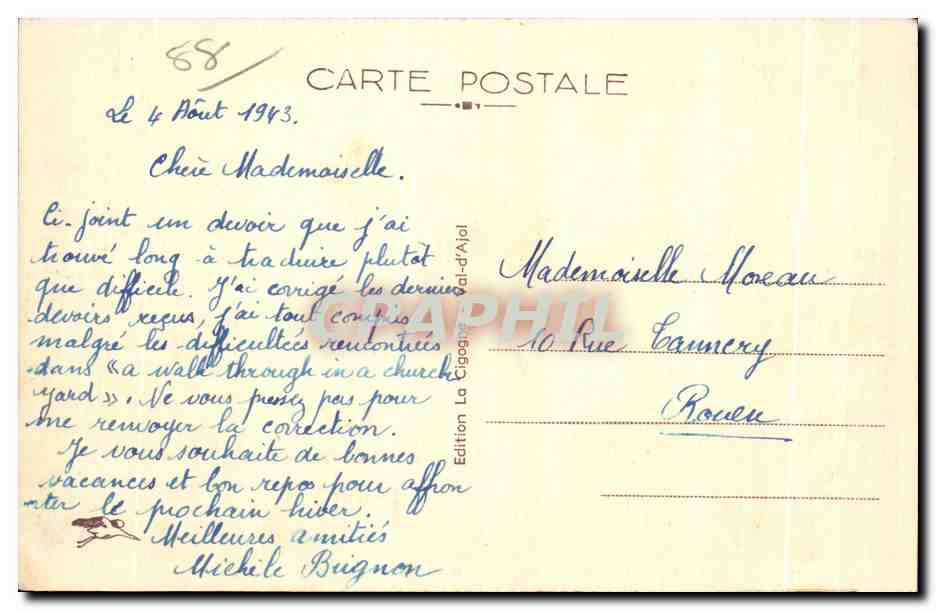 88/
CARTE POSTALE
Le 4 Août 1943.
Chère Mademoiselle.
Ci-joint un devoir que j'ai
trouvé long à traduire plutôt
que difficile. J'ai corrigé les derniers
devoirs reçus, j'ai tout compris
malgré les difficultées rencontrées
dans « a walk through in a church
yard ». Ne vous pressez pas pour
me renvoyer la correction.
Je vous souhaite de bonnes
vacances et bon repos pour affron
-ter le prochain hiver.
Meilleures amitiés
Michèle Brignon
Edition La Cigogne - Val-d'Ajol
Mademoiselle Moreau
10 Rue Tannery
Rouen
CRAPHIL